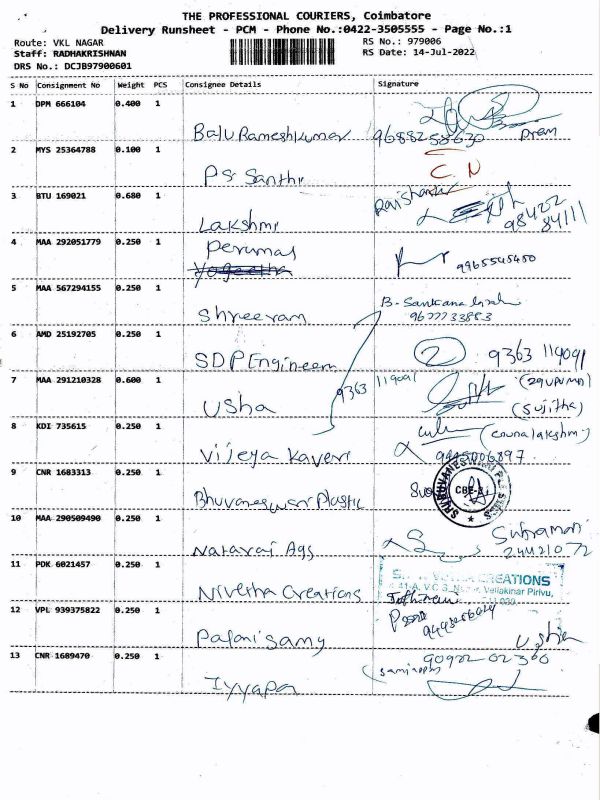 THE PROFESSIONAL COURIERS, Coimbatore
Delivery Runsheet - PCM - Phone No.:0422-3505555 - Page No.:1
Route: VKL NAGAR
RS No.: 979006
Staff: RADHAKRISHNAN
RS Date: 14-Jul-2022
DRS No.: DCJB97900601
S No Consignment No Weight PCS Consignee Details Signature
1 DPM 666104 0.400 1
Balu Rameshkumar 9688258630
2 MYS 25364788 0.100 1
PS Santhi C. N
3 BTU 169021 0.680 1
Lakshmi 98422 84111
4 MAA 292051779 0.250 1
Perumal
9965545450
5 MAA 567294155 0.250 1
Shreeram 9677733883
6 AMD 25192705 0.250 1
SDP Engineers 2 9363 119091
7 MAA 291210328 0.600 1
Usha 9363 119091 (Sujitha)
8 KDI 735615 0.250 1
Vijeya Kaveri 9445006897
9 CNR 1683313 0.250 1
Bhuvaneswari Plastic
10 MAA 290509490 0.250 1
Nataraj Ags
11 PDK 6021457 0.250 1
Nivetha Creations CREATIONS
Vellakinar Pirivu,
12 VPL 939375822 0.250 1
Palanisamy
13 CNR 1689470 0.250 1
Iyyapan